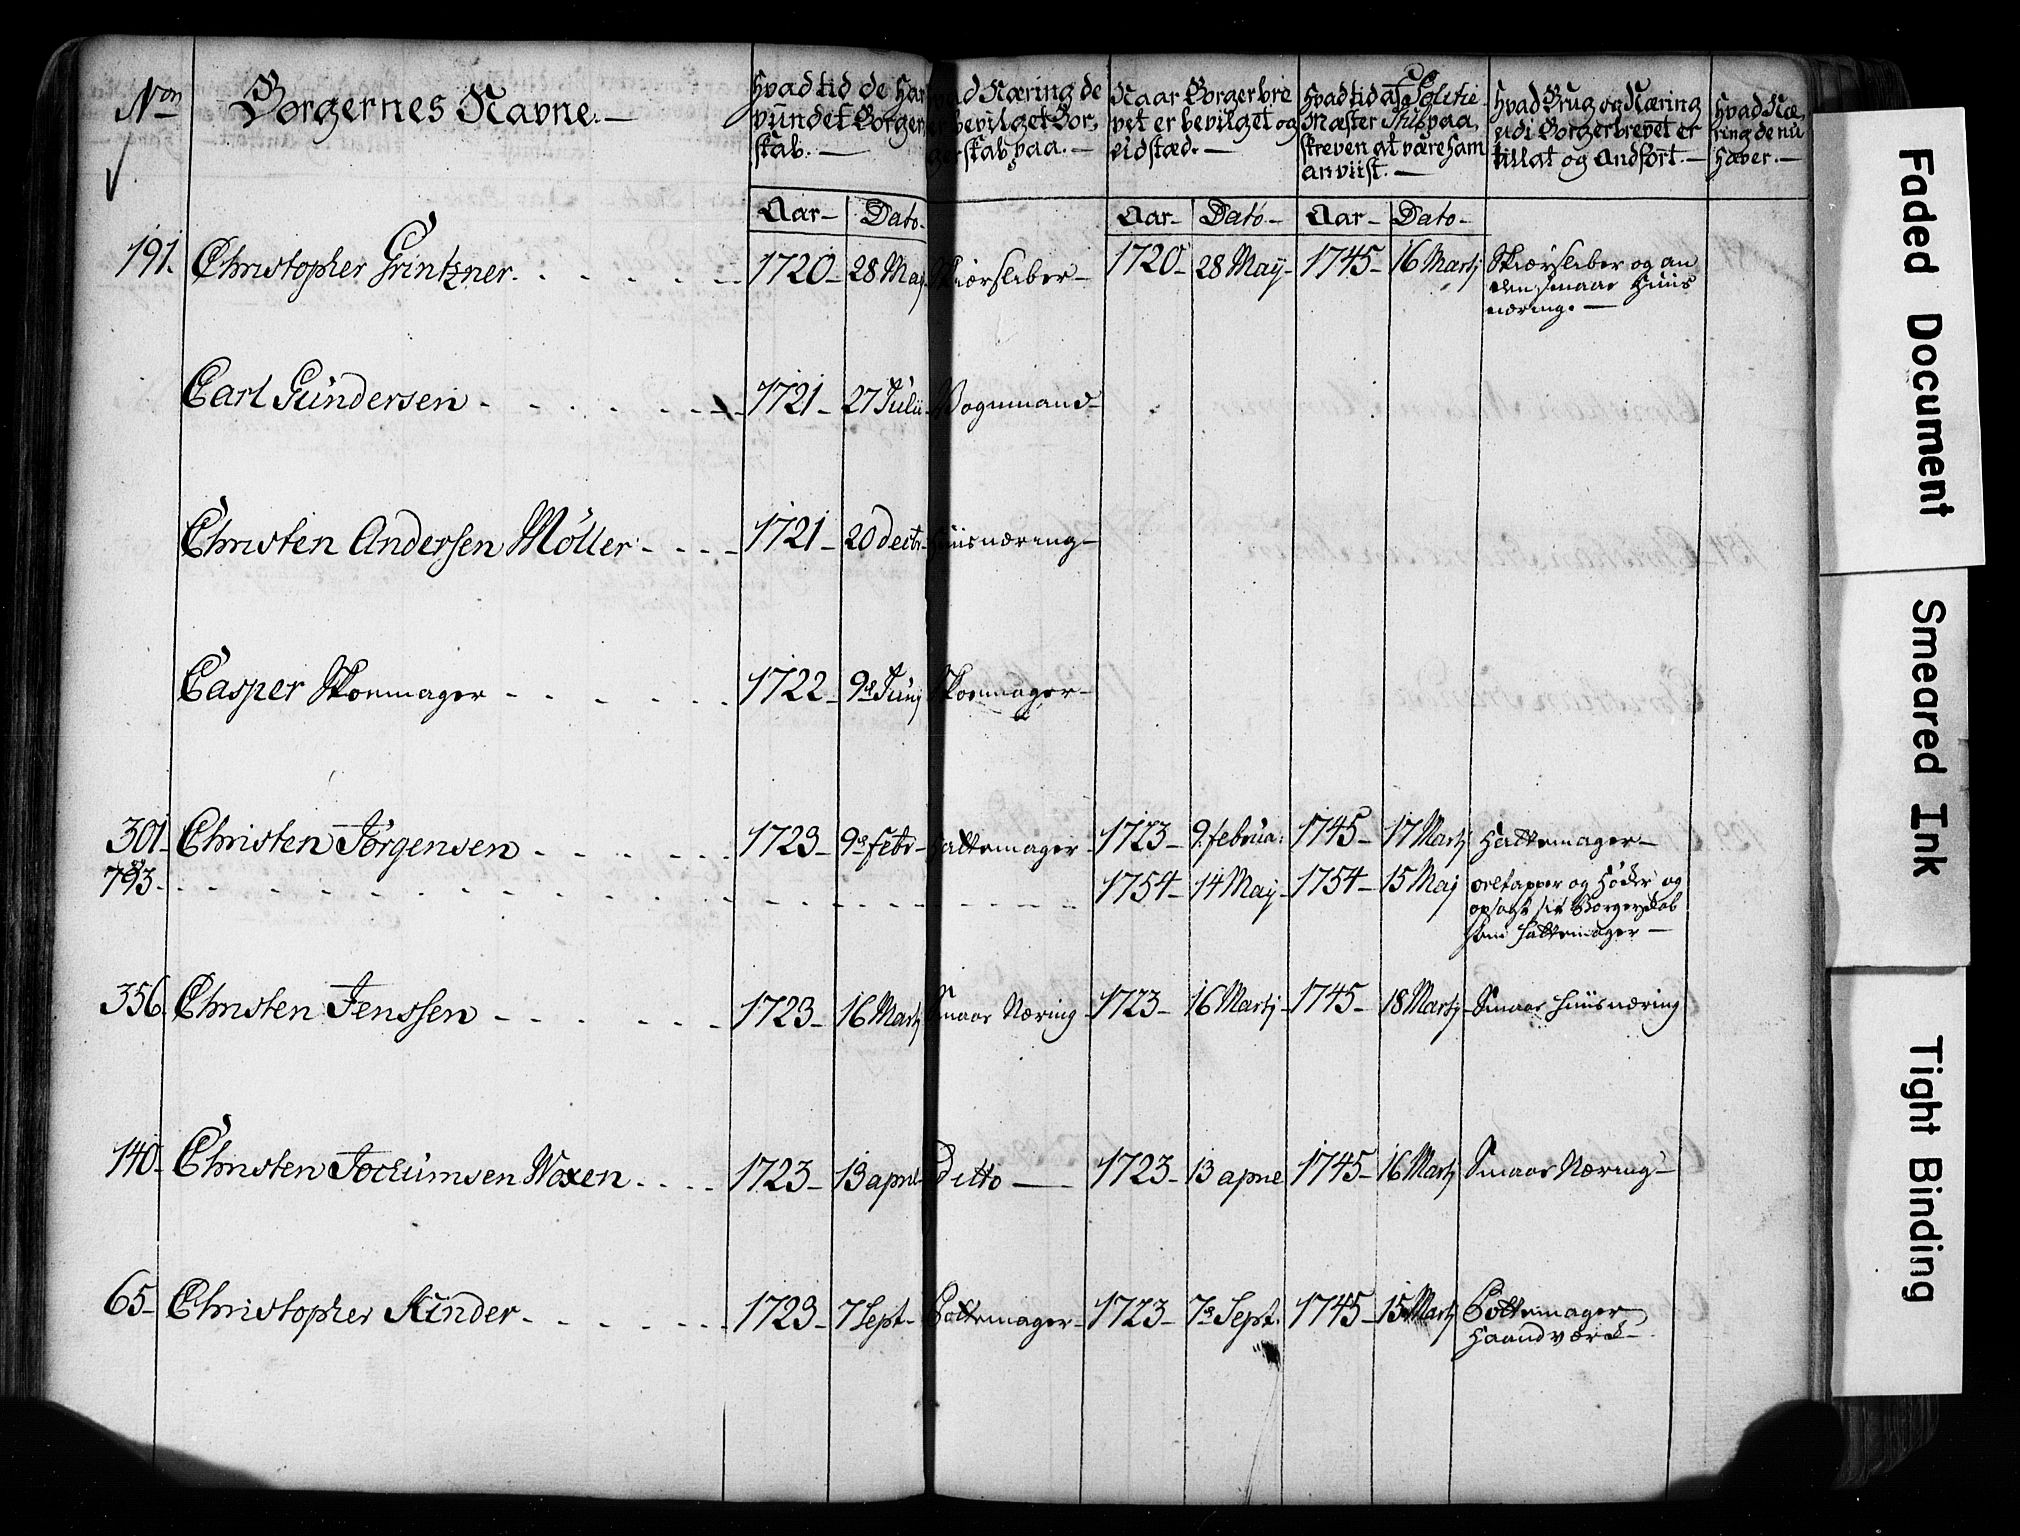 Non Borgernes Navne.—
Hvad tid de Har
vundet Borger
skab.—
Hvad Næring de
er bevilget Bor,
gerskab paa.—
Naar Borgerbre
vet er bevilget og
eidstæd.—
Hvad tid at Politie
Mæster Thus paa,
skreven at være ham
anviist.—
Hvad Brug og Næring
udi Borgerbrevet er
tillat og Andfört.—
Hvad Næ,
ring de nu
Hæver.—
Aar— Dato— Aar— Dato— Aar— Dato—
191. Christopher Grintzner. 1720— 28 May Skiørsliber— 1720— 28 Maÿ— 1745— 16 Martj Skiørsliber og an
den smaae Huus
næring.—
Carl Gündersen 1721— 27 Julii Vognmand—
Christen Andersen Möller 1721— 20 decbr Huusnæring—
Casper Skoemager 1722— 9d Junj Skoemager—
301. Christen Jörgensen 1723— 9d febr— Hattemager 1723— 9. februa: 1745— 17 Martj Hattemager—
793. 1754— 14 Maÿ— 1754— 15 Maj øeltapper og Höcker og
opsagt sit Borgerskab
som Hattemager—
356. Christen Jenssen 1723— 16 Martj Smaae Næring 1723— 16 Martj— 1745— 18 Martj— Smaae Huusnæring
140. Christen Jochumsen Woxen 1723— 13 april Ditto— 1723— 13 apríl 1745— 16 Martj Smaae Næring—
65— Christopher Kinder 1723— 7 Sept— Pottemager— 1723— 7d Sept. 1745— 15 Martj Pottemager
Haandværck—
Faded Document
Smeared Ink
Tight Binding